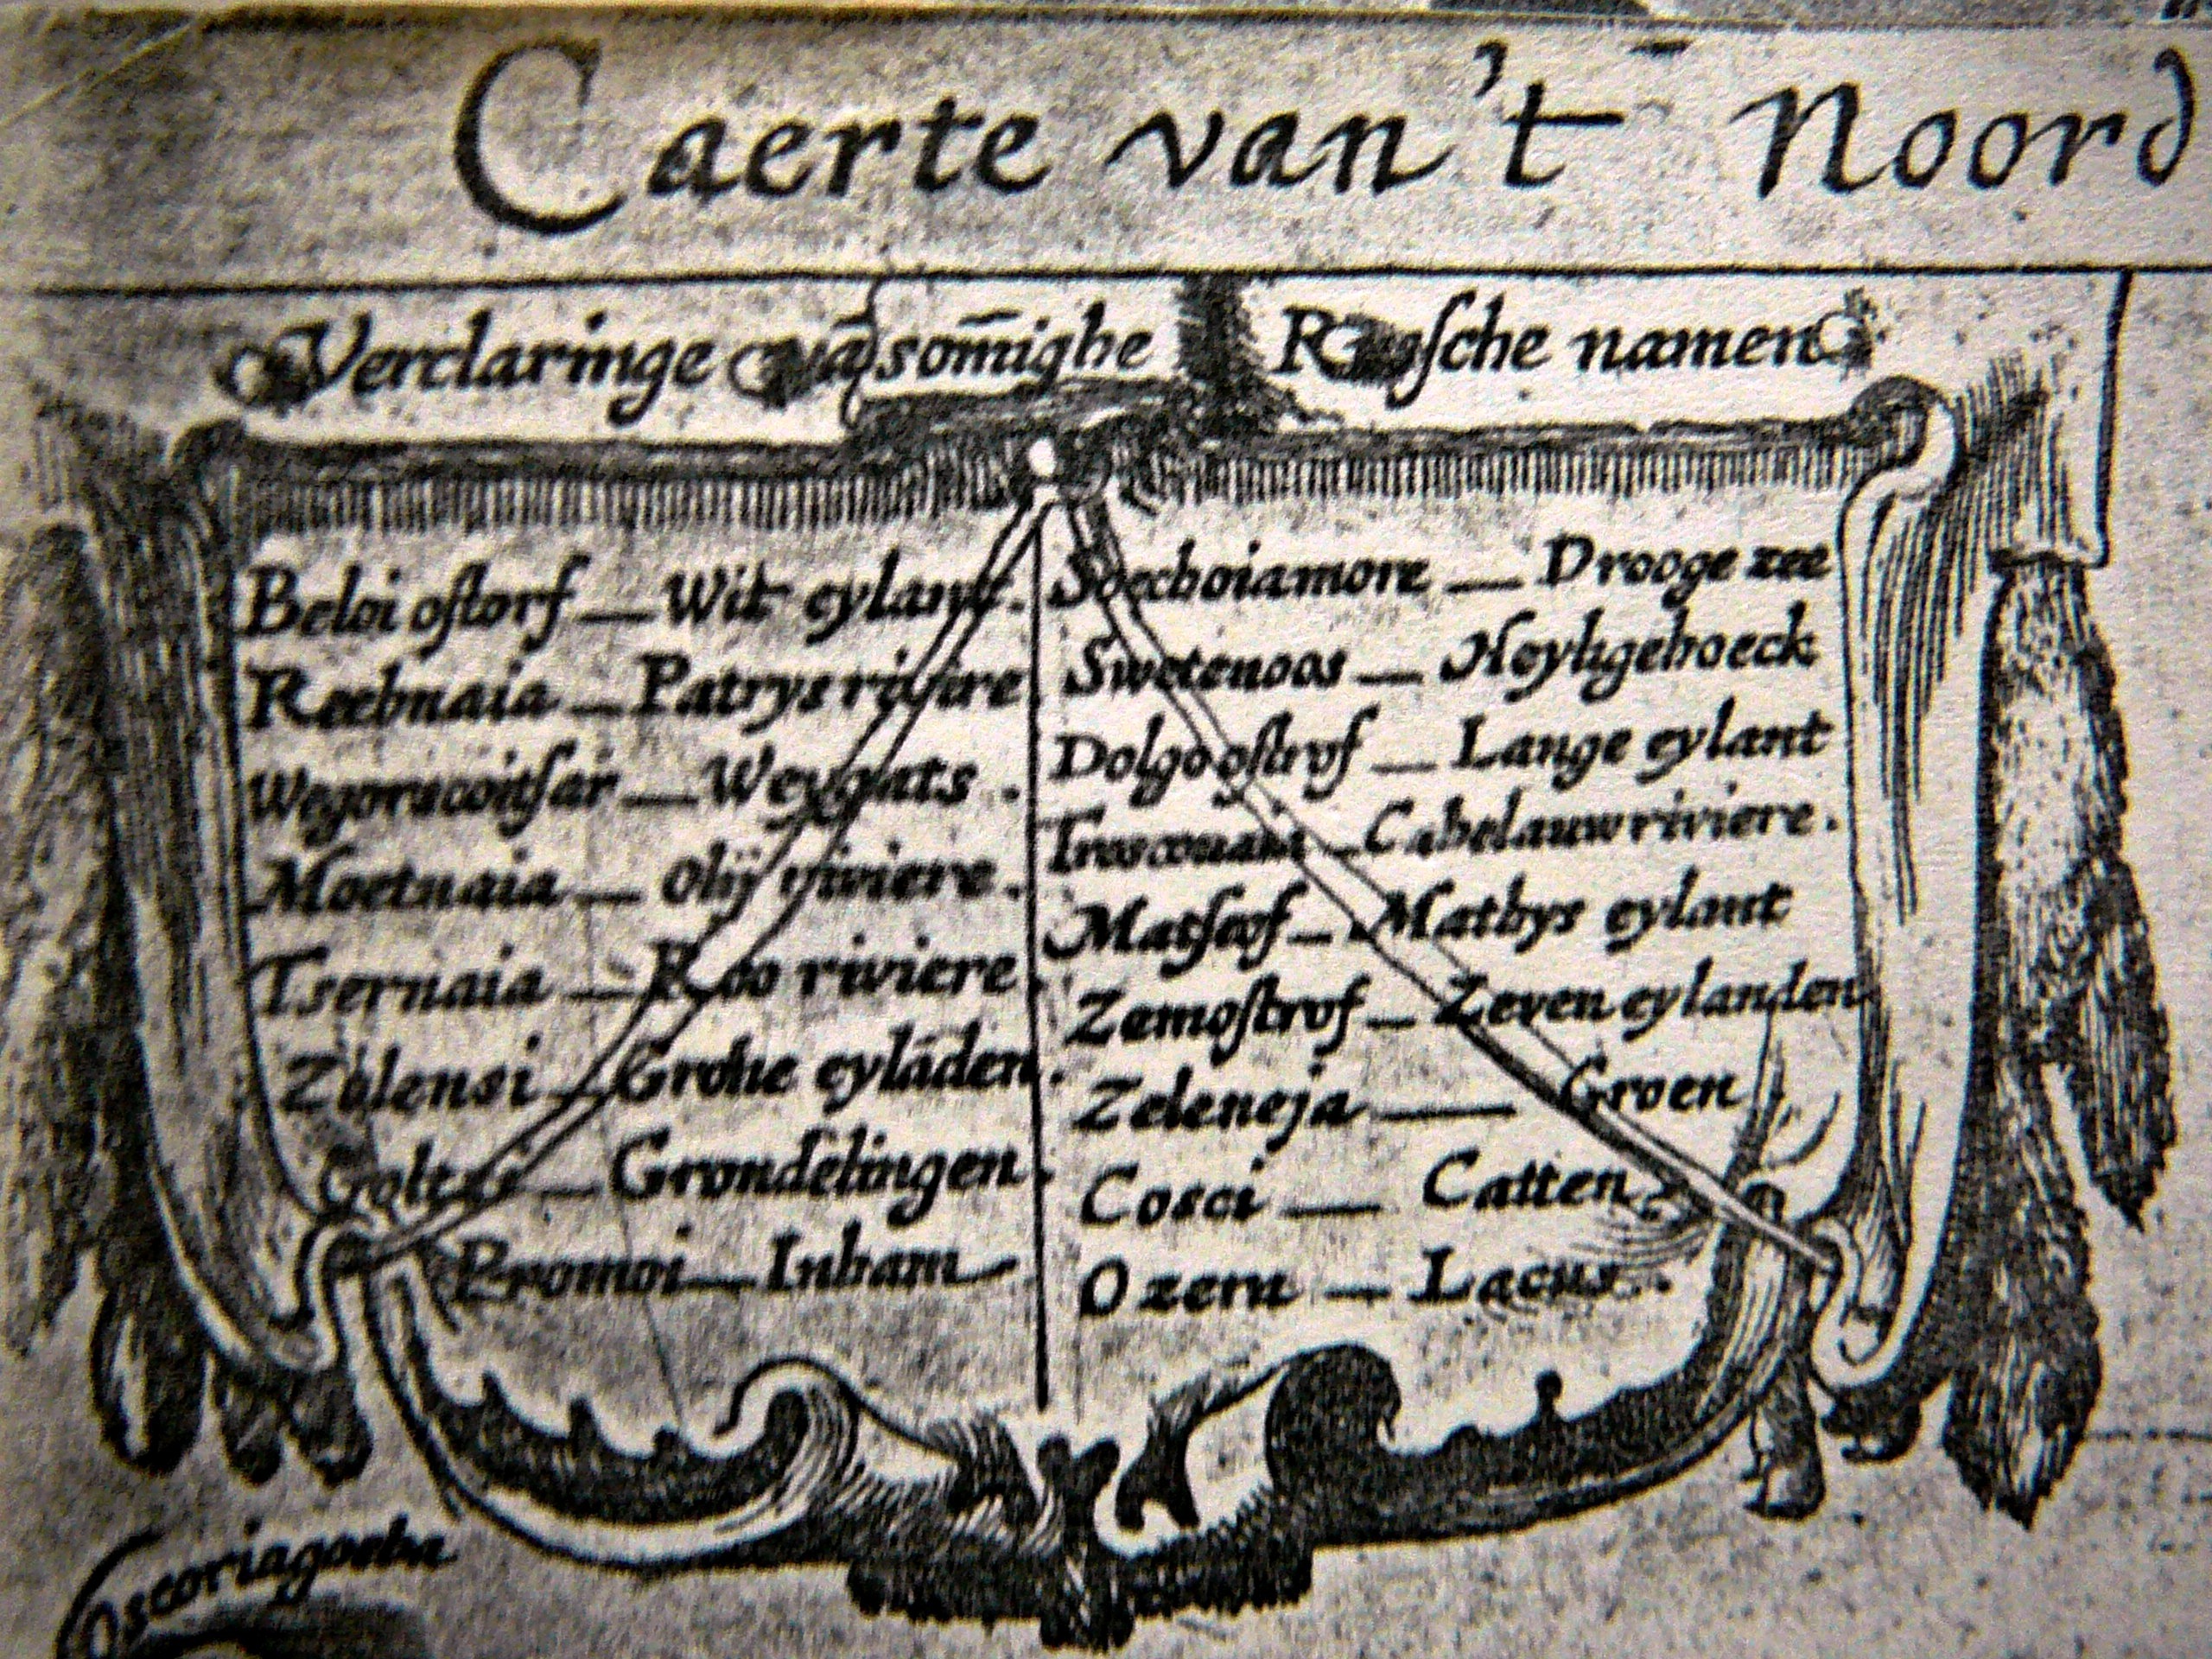 Caerte van't Noord
Verclaringe vā som̄ighe Rusſche namen
Beloi oſtorf — Wit eylant.
Reebnaia — Patrys riviere
Weygats.
Moetnaia — Olij riviere.
Tsernaia — Roo riviere.
Zelensi — Grohe eylāden.
Goltzi — Grondelingen.
Promoi — Inham
Soechoiamore — Drooge zee
Swetenoos — Heylige hoeck
Dolgo oſtrof — Lange eylant
Cabelauw riviere.
Matſeof — Mathys eylant
Zemoſtrof — Zeven eylanden
Zeleneja — Groen
Cosci — Catten
Ozera — Lacus.
Oscoriagoeba